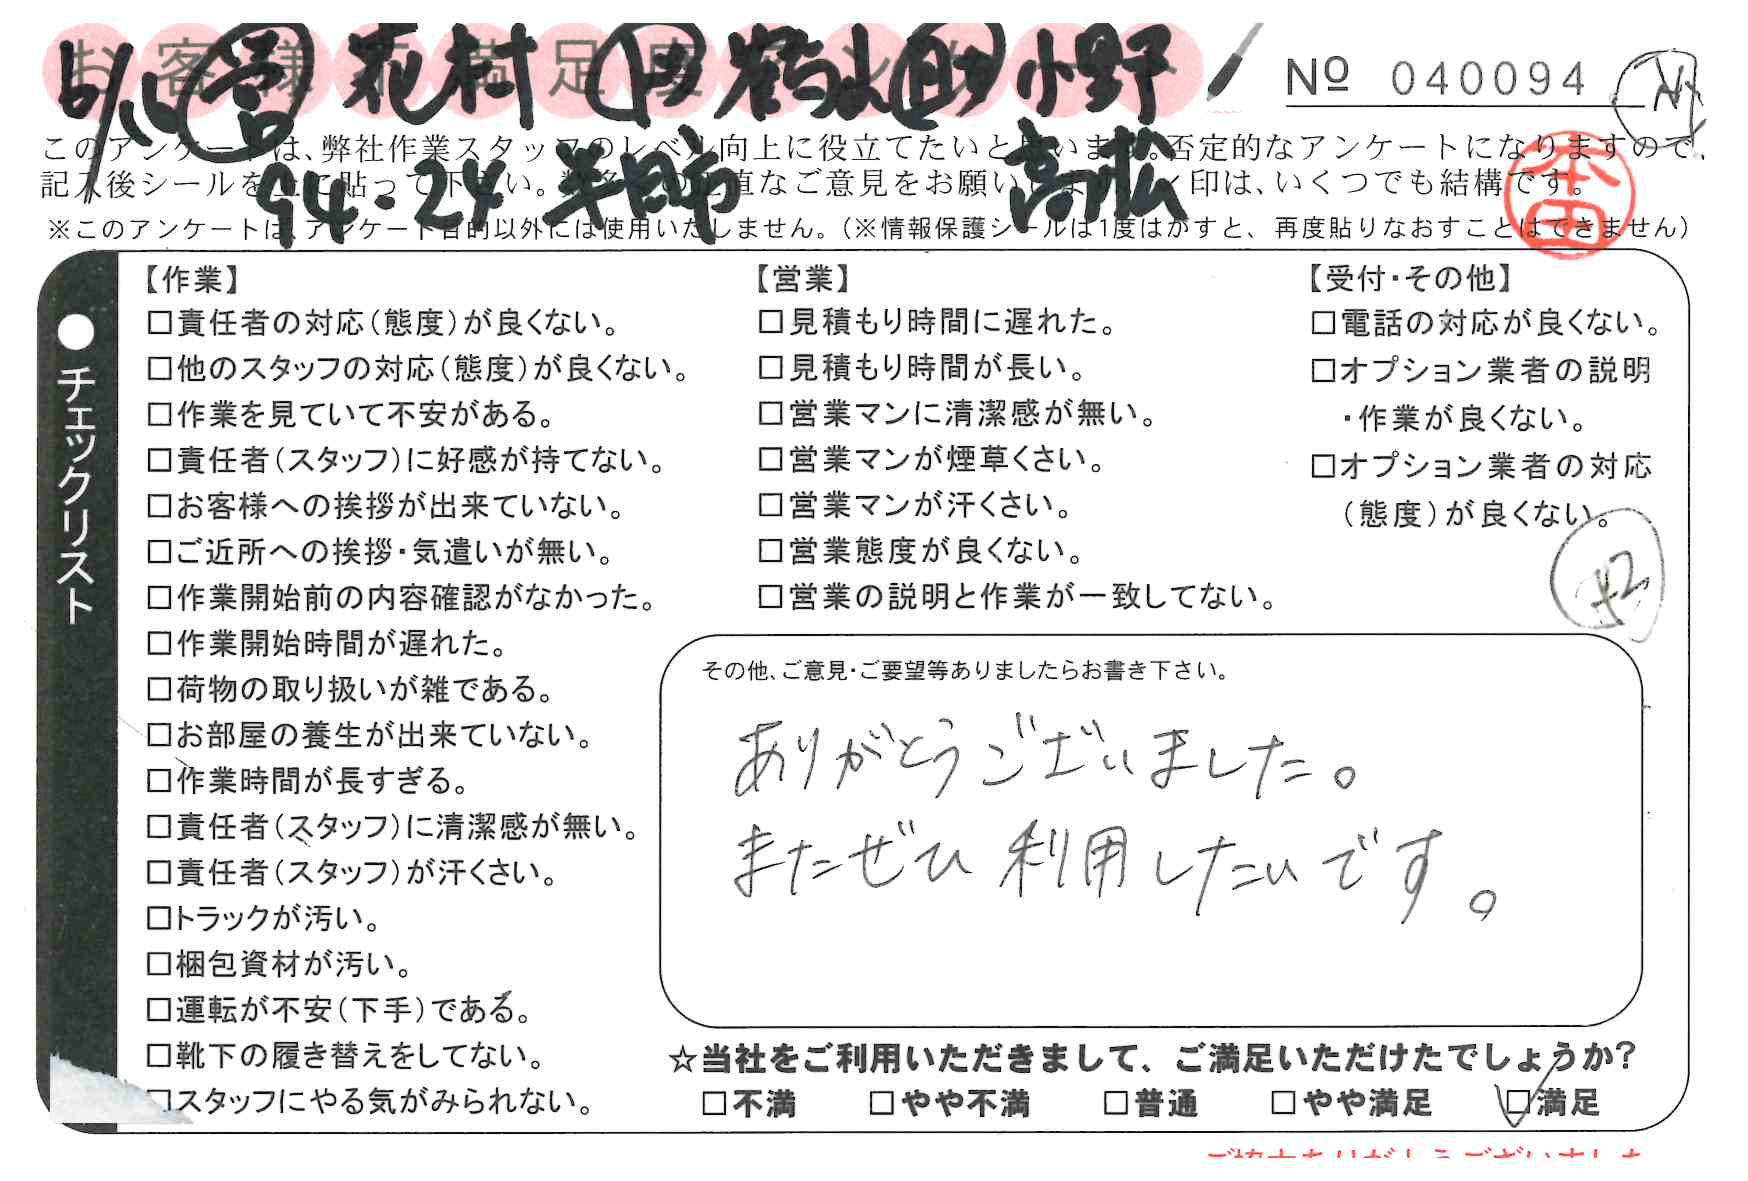 お客様 満足度アンケート
6/16 営 花村 責 鶴山 助 小野
№ 040094
このアンケートは、弊社作業スタッフのレベル向上に役立てたいと思います。否定的なアンケートになりますので、
高松
記入後シールを上に貼って下さい。数多くの正直なご意見をお願いします。✓印は、いくつでも結構です。
94・24 半日市
本田
※このアンケートは、アンケート目的以外には使用いたしません。（※情報保護シールは1度はがすと、再度貼りなおすことはできません）
●チェックリスト
【作業】
□責任者の対応（態度）が良くない。
□他のスタッフの対応（態度）が良くない。
□作業を見ていて不安がある。
□責任者（スタッフ）に好感が持てない。
□お客様への挨拶が出来ていない。
□ご近所への挨拶・気遣いが無い。
□作業開始前の内容確認がなかった。
□作業開始時間が遅れた。
□荷物の取り扱いが雑である。
□お部屋の養生が出来ていない。
□作業時間が長すぎる。
□責任者（スタッフ）に清潔感が無い。
□責任者（スタッフ）が汗くさい。
□トラックが汚い。
□梱包資材が汚い。
□運転が不安（下手）である。
□靴下の履き替えをしてない。
□スタッフにやる気がみられない。
【営業】
□見積もり時間に遅れた。
□見積もり時間が長い。
□営業マンに清潔感が無い。
□営業マンが煙草くさい。
□営業マンが汗くさい。
□営業態度が良くない。
□営業の説明と作業が一致してない。
【受付・その他】
□電話の対応が良くない。
□オプション業者の説明
・作業が良くない。
□オプション業者の対応
（態度）が良くない。
その他、ご意見・ご要望等ありましたらお書き下さい。
ありがとうございました。
またぜひ利用したいです。
☆当社をご利用いただきまして、ご満足いただけたでしょうか？
□不満 □やや不満 □普通 □やや満足 ☑満足
ご協力ありがとうございました